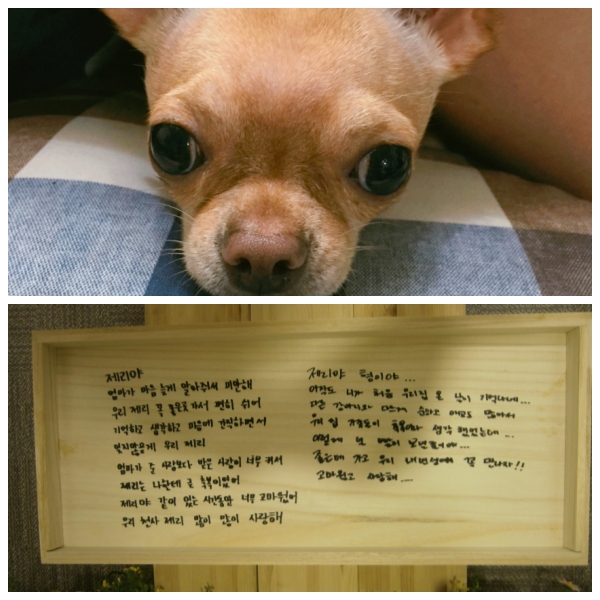 제리야
엄마가 마음 늦게 알아주어서 미안해
우리 제리 꼭 좋은곳 가서 편히 쉬어
기억하고 생각하고 마음에 간직하면서
잊지않을게 우리 제리
엄마가 준 사랑보다 받은 사랑이 너무 커서
제리는 나한테 큰 축복이었어
제리야 같이 있는 시간동안 너무 고마웠어
우리 천사 제리 많이 많이 사랑해
제리야 형이야...
아직도 니가 처음 우리집 온 날이 기억나네...
작은 강아지라 순하고 애교도 많아서
우리 집 가족들이 생각 했었는데...
이렇게 널 빨리 보낸줄이야...
좋은데 가고 우리 내번생에 꼭 만나자!!
고마웠고 사랑해....